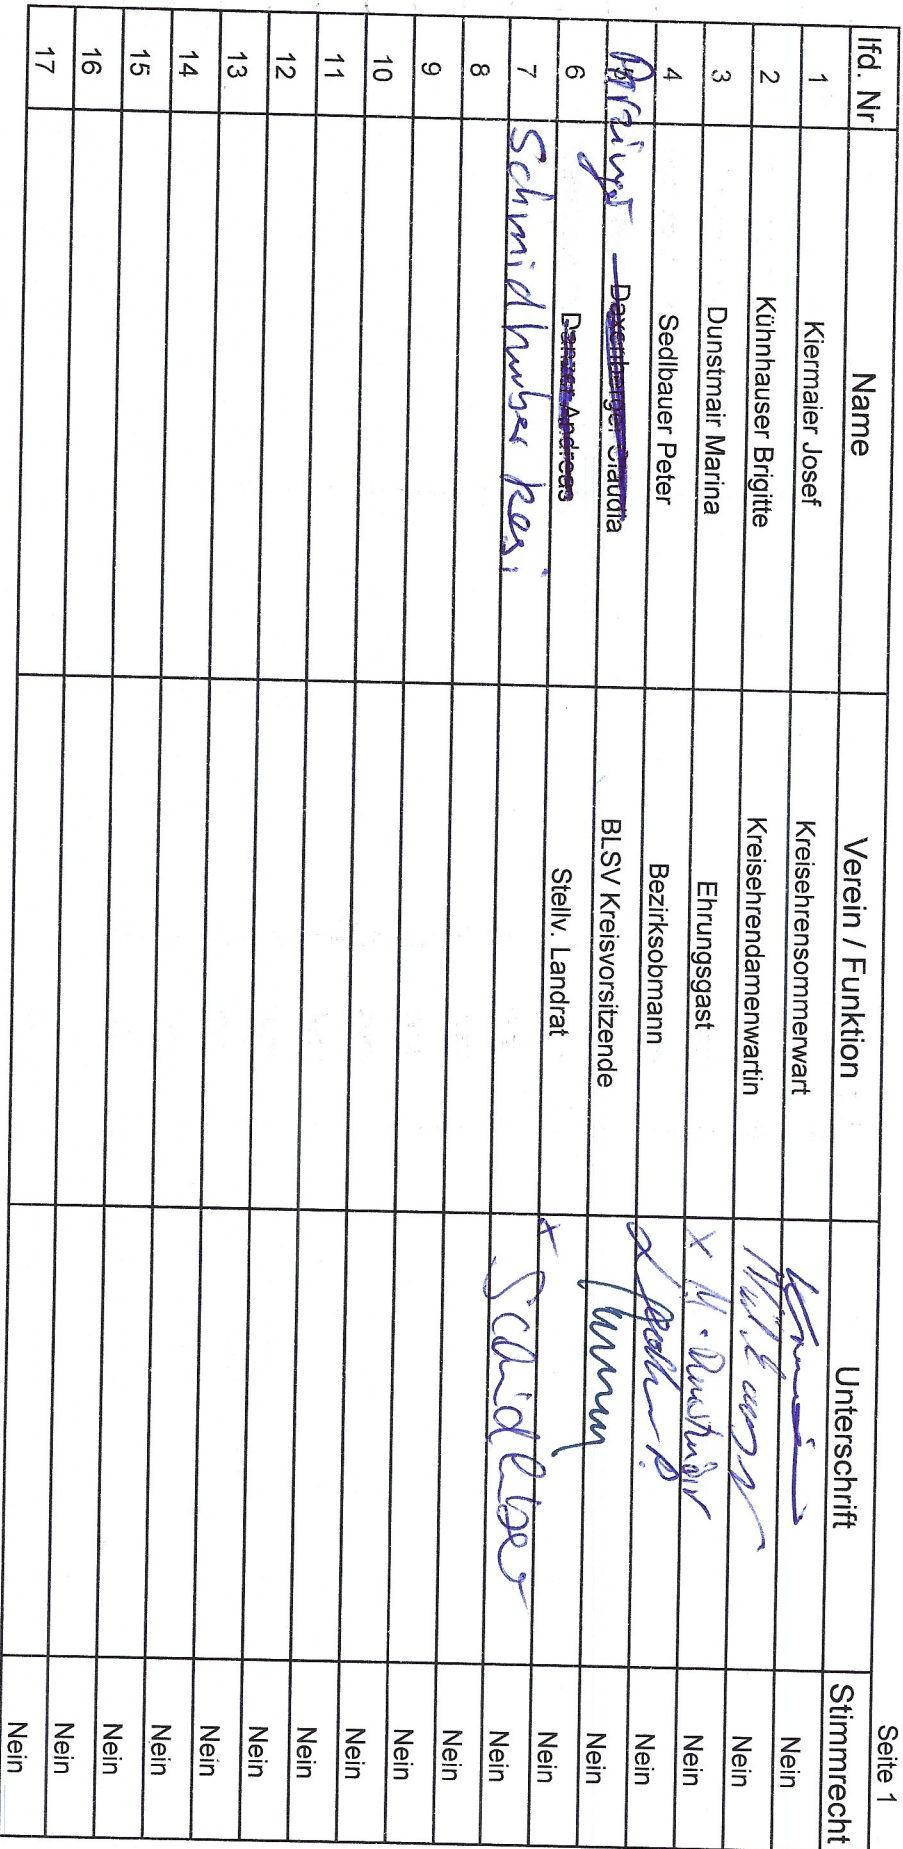 Seite 1
lfd. Nr Name Verein / Funktion Unterschrift Stimmrecht
1 Kiermaier Josef Kreisehrensommerwart Nein
2 Kühnhauser Brigitte Kreisehrendamenwartin Nein
3 Dunstmair Marina Ehrungsgast x M. Dunstmair Nein
4 Sedlbauer Peter Bezirksobmann Nein
Daxenberger Claudia BLSV Kreisvorsitzende Nein
6 Danzer Andreas Stellv. Landrat x Nein
7 Schmidhuber Resi Nein
8 Nein
9 Nein
10 Nein
11 Nein
12 Nein
13 Nein
14 Nein
15 Nein
16 Nein
17 Nein